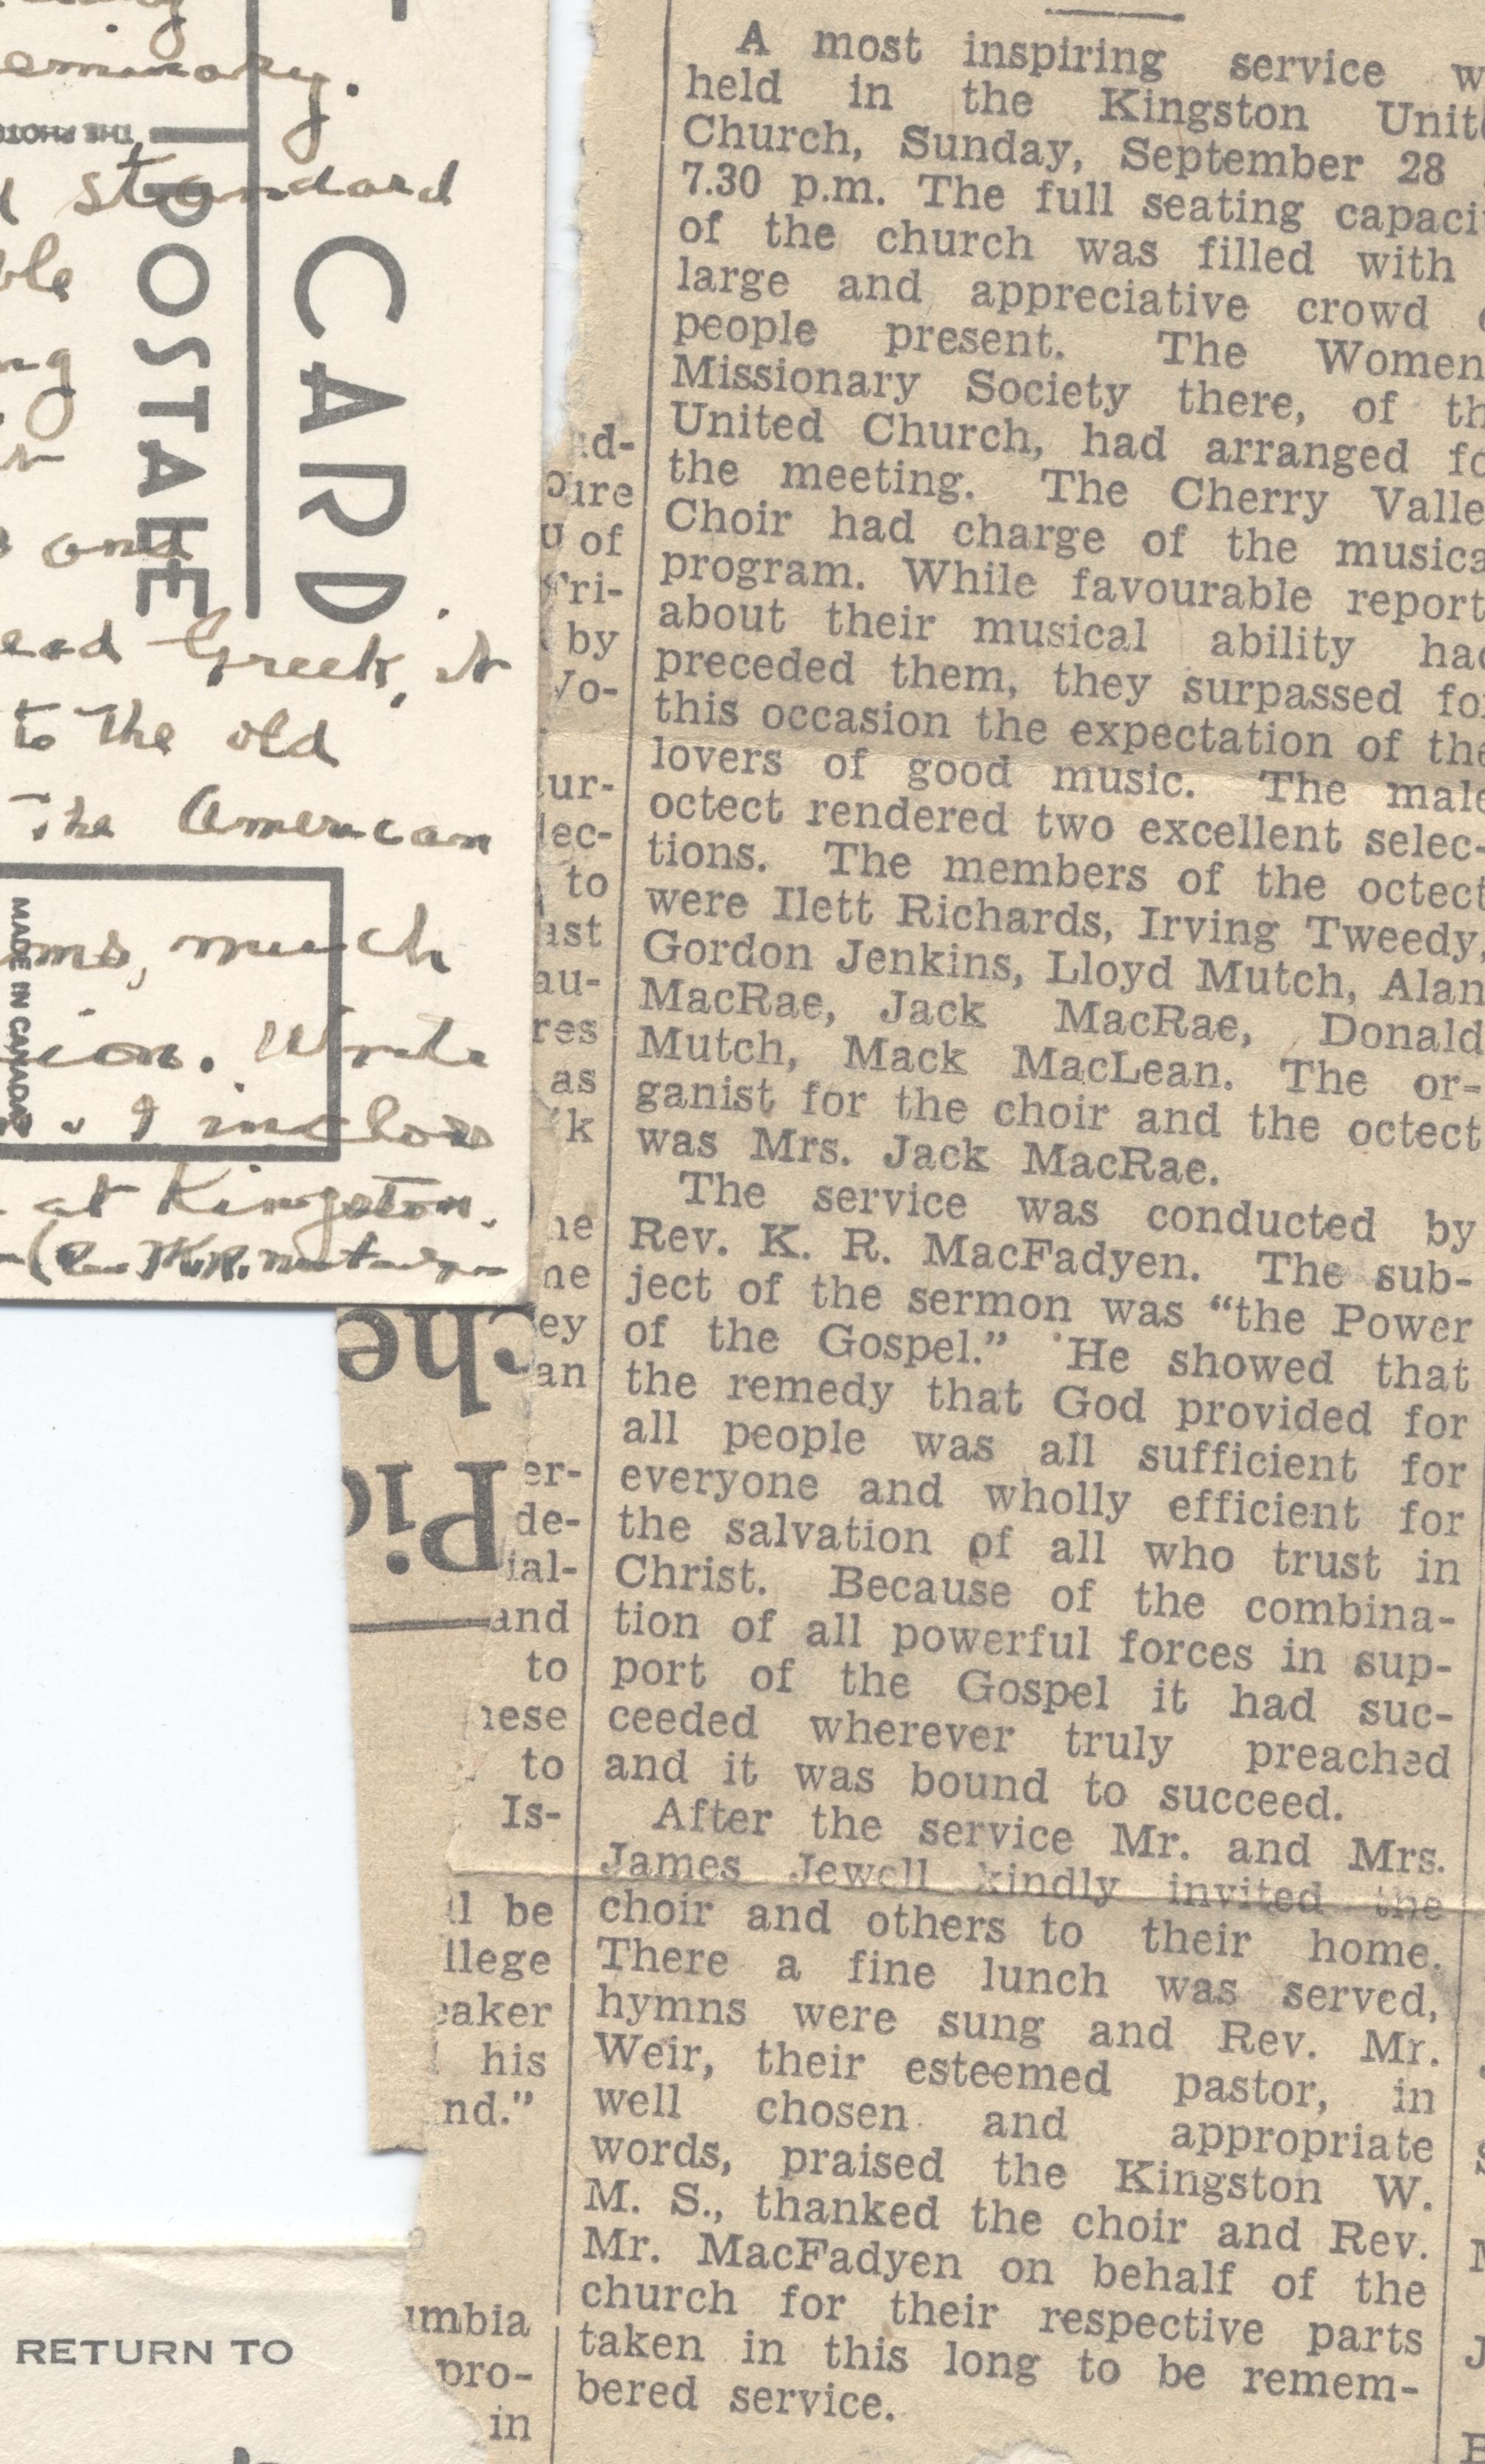 eminary.
standard
ble
ng
and
ead Greek, it
to the old
The American
ms, much
ion. Write
. I inclose
at Kingston.
POSTAGE
CARD
THE PHOTO
MADE IN CANADA
che
Pic
RETURN TO
ad-
ure
of
Tri-
by
Vo-
ur-
lec-
to
ast
au-
res
as
k
he
ne
ey
an
er-
de-
ial-
and
to
hese
to
Is-
ll be
llege
eaker
his
nd."
umbia
pro-
in
A most inspiring service w
held in the Kingston Unit
Church, Sunday, September 28
7.30 p.m. The full seating capaci
of the church was filled with
large and appreciative crowd o
people present. The Women
Missionary Society there, of th
United Church, had arranged fo
the meeting. The Cherry Valle
Choir had charge of the musica
program. While favourable report
about their musical ability had
preceded them, they surpassed for
this occasion the expectation of the
lovers of good music. The male
octect rendered two excellent selec-
tions. The members of the octect
were Ilett Richards, Irving Tweedy,
Gordon Jenkins, Lloyd Mutch, Alan
MacRae, Jack MacRae, Donald
Mutch, Mack MacLean. The or-
ganist for the choir and the octect
was Mrs. Jack MacRae.
The service was conducted by
Rev. K. R. MacFadyen. The sub-
ject of the sermon was "the Power
of the Gospel." He showed that
the remedy that God provided for
all people was all sufficient for
everyone and wholly efficient for
the salvation of all who trust in
Christ. Because of the combina-
tion of all powerful forces in sup-
port of the Gospel it had suc-
ceeded wherever truly preached
and it was bound to succeed.
After the service Mr. and Mrs.
James Jewell kindly invited the
choir and others to their home.
There a fine lunch was served,
hymns were sung and Rev. Mr.
Weir, their esteemed pastor, in
well chosen and appropriate
words, praised the Kingston W.
M. S., thanked the choir and Rev.
Mr. MacFadyen on behalf of the
church for their respective parts
taken in this long to be remem-
bered service.